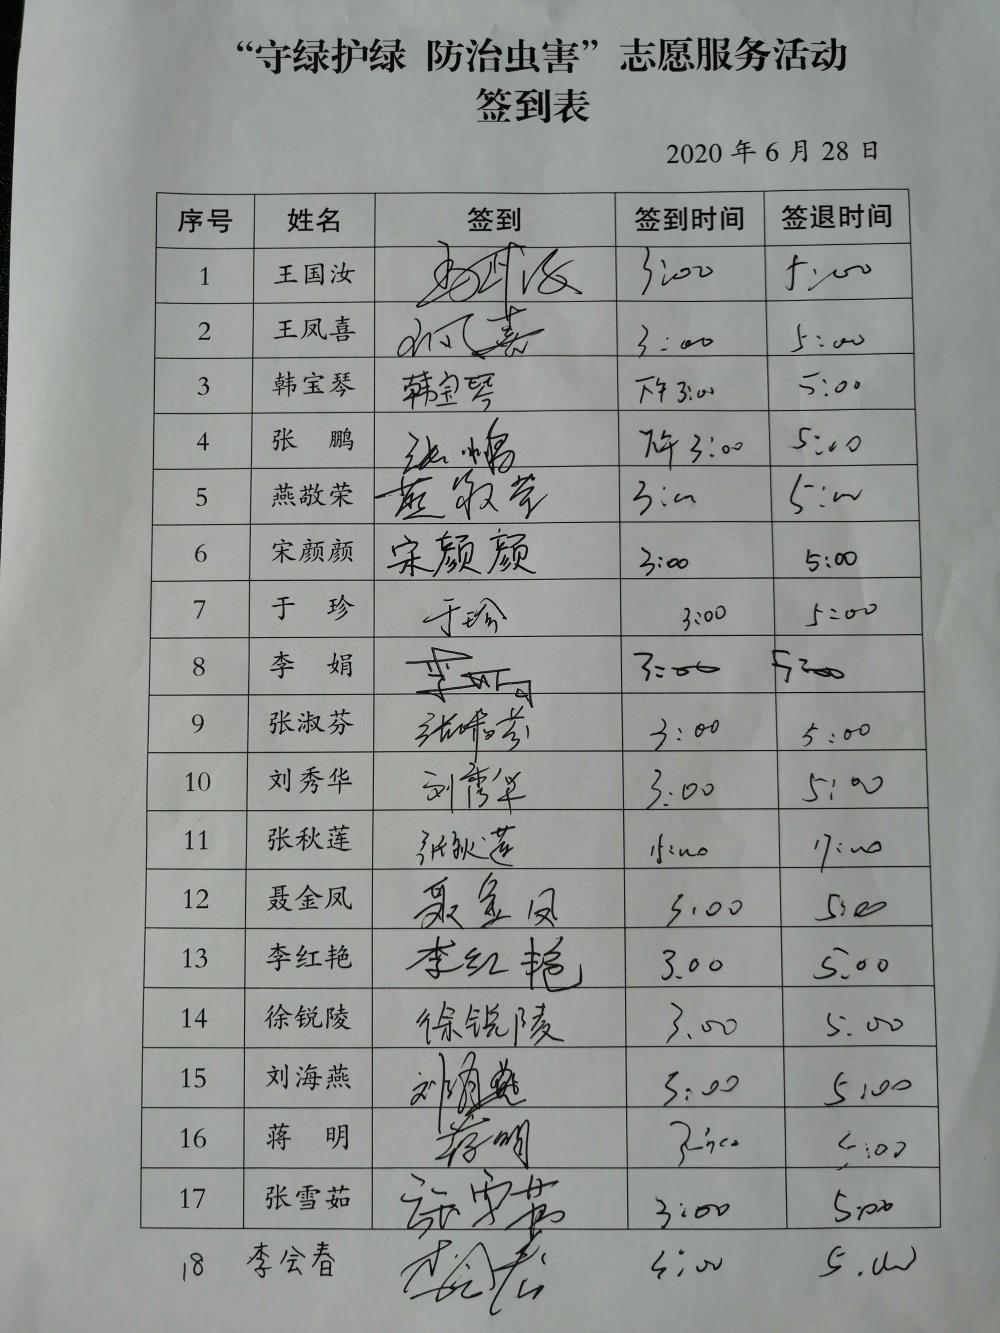 “守绿护绿 防治虫害”志愿服务活动
签到表
2020 年 6 月 28 日
序号 姓名 签到 签到时间 签退时间
1 王国汝 王国汝 3:00 5:00
2 王凤喜 王凤喜 3:00 5:00
3 韩宝琴 韩宝琴 下午3:00 5:00
4 张 鹏 张鹏 下午3:00 5:00
5 燕敬荣 燕敬荣 3:00 5:00
6 宋颜颜 宋颜颜 3:00 5:00
7 于 珍 于珍 3:00 5:00
8 李 娟 李娟 3:00 5:00
9 张淑芬 张淑芬 3:00 5:00
10 刘秀华 刘秀华 3:00 5:00
11 张秋莲 张秋莲 15:00 17:00
12 聂金凤 聂金凤 3:00 5:00
13 李红艳 李红艳 3.00 5:00
14 徐锐陵 徐锐陵 3.00 5.00
15 刘海燕 刘海燕 3:00 5:00
16 蒋 明 蒋明 3:00 5:00
17 张雪茹 张雪茹 3:00 5:00
18 李会春 李会春 3:00 5:00